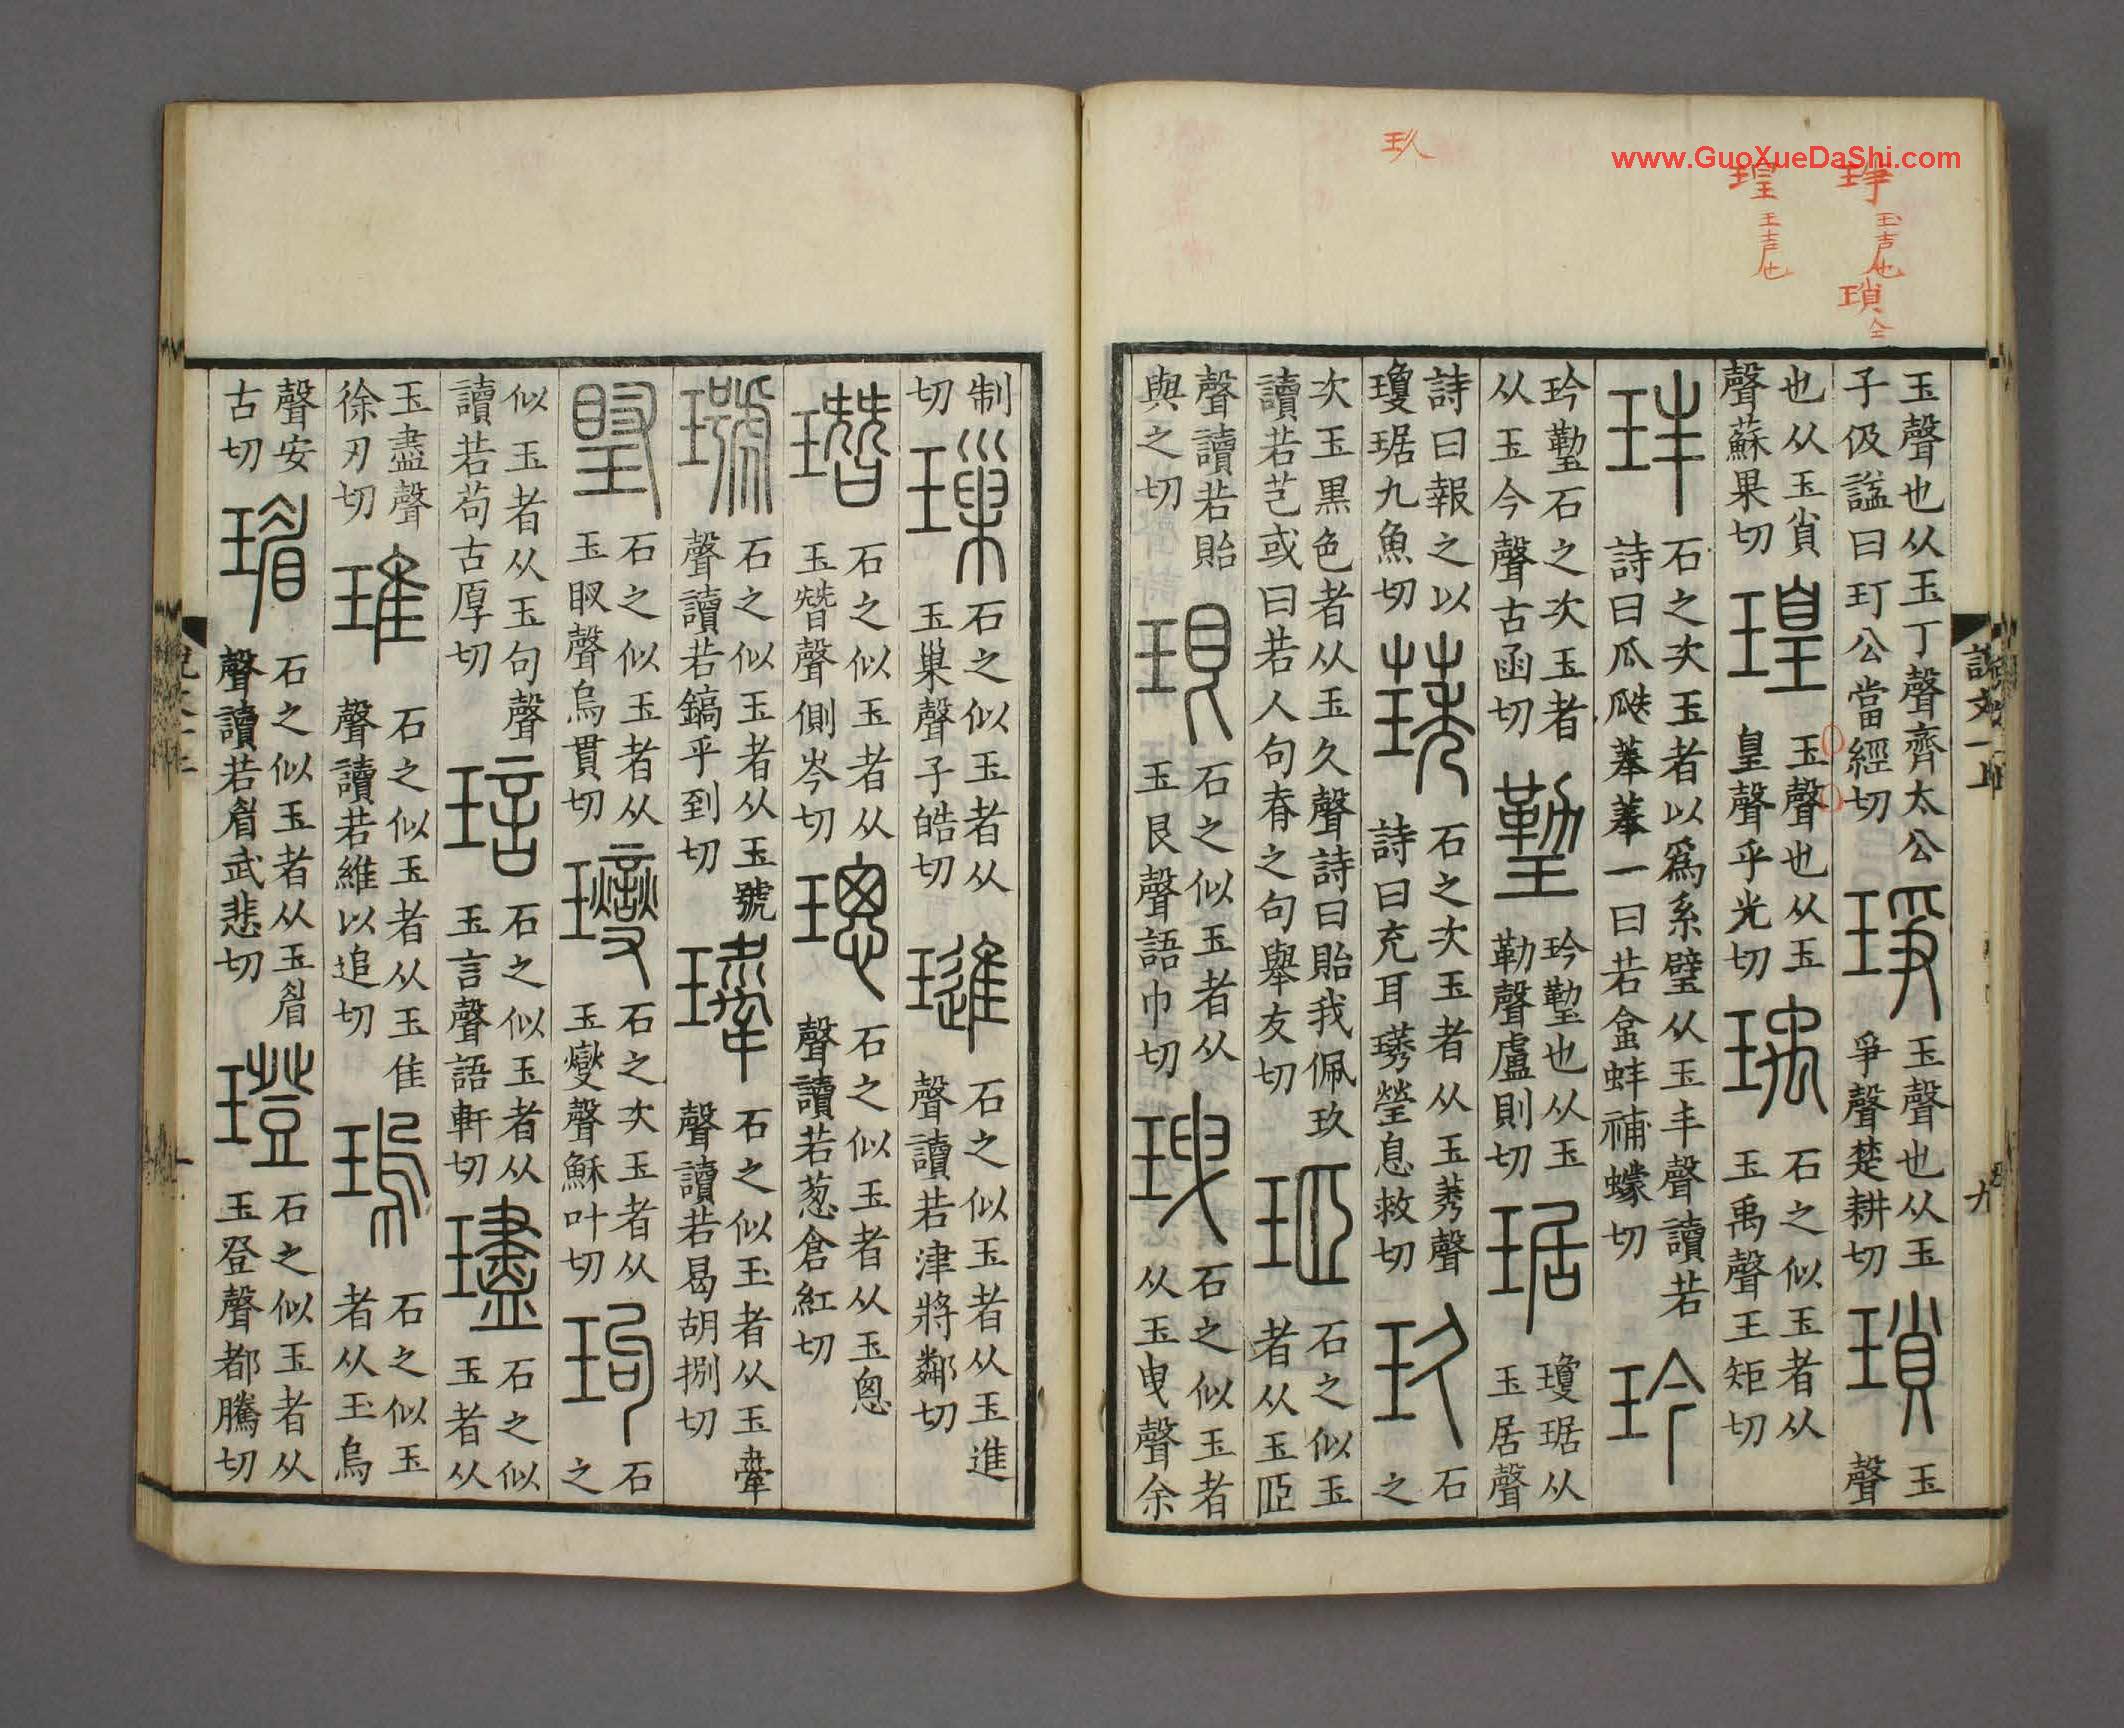 玉聲也从玉丁聲齊太公
子伋謚曰玎公當經切
琤
玉聲也从玉
爭聲楚耕切
瑣
玉
聲
也从玉𧴪
聲蘇果切
瑝
玉聲也从玉
皇聲乎光切
瑀
石之似玉者从
玉禹聲王矩切
玤
石之次玉者以爲系璧从玉丰聲讀若
詩曰瓜瓞菶菶一曰若盒蚌補蠓切
玪
玪𤨙石之次玉者
从玉今聲古函切
𤨙
玪𤨙也从玉
勒聲盧則切
琚
瓊琚从
玉居聲
詩曰報之以
瓊琚九魚切
璓
石之次玉者从玉莠聲
詩曰充耳璓瑩息救切
玖
石
之
次玉黑色者从玉久聲詩曰貽我佩玖
讀若芑或曰若人句脊之句舉友切
㺿
石之似玉
者从玉𦣞
聲讀若貽
與之切
珢
石之似玉者从
玉艮聲語巾切
㻎
石之似玉者
从玉曳聲余
說文一上
九
制
切
璅
石之似玉者从
玉巢聲子皓切
璡
石之似玉者从玉進
聲讀若津將鄰切
石之似玉者从
玉朁聲側岑切
璁
石之似玉者从玉悤
聲讀若蔥倉紅切
石之似玉者从玉號
聲讀若鎬乎到切
石之似玉者从玉舝
聲讀若曷胡捌切
石之似玉者从
玉䀏聲烏貫切
石之次玉者从
玉燮聲穌叶切
玽
石
之
似玉者从玉句聲
讀若苟古厚切
琂
石之似玉者从
玉言聲語軒切
璶
石之似
玉者从
玉盡聲
徐刃切
石之似玉者从玉隹
聲讀若維以追切
瑦
石之似玉
者从玉烏
聲安
古切
瑂
石之似玉者从玉眉
聲讀若眉武悲切
璒
石之似玉者从
玉登聲都騰切
說文一上
琤 玉声也
瑣 仝
瑝 玉声也
玖
www.GuoXueDaShi.com